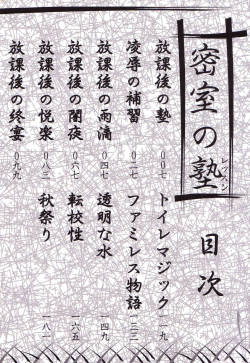 密室の塾
レッスン
目次
放課後の塾 〇〇七
凌辱の補習 〇二七
放課後の雨滴 〇四七
放課後の闇夜 〇六七
放課後の悦楽 〇八三
放課後の終宴 〇九九
トイレマジック 一一九
ファミレス物語 一三一
透明な水 一四九
転校性 一六五
秋祭り 一八一